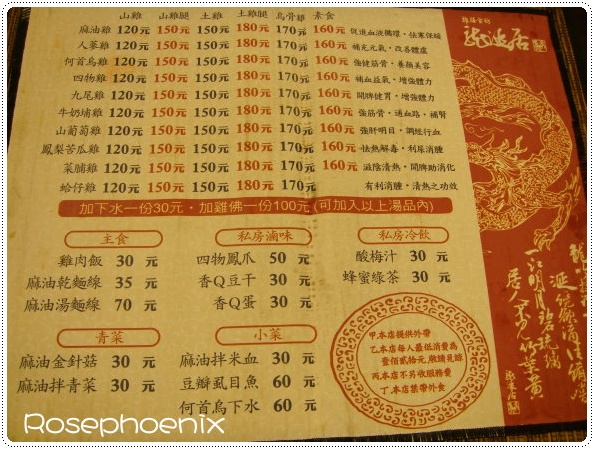 山雞 山雞腿 土雞 土雞腿 烏骨雞 素食
麻油雞 120元 150元 150元 180元 170元 160元 促進血液循環、祛寒保暖
人蔘雞 120元 150元 150元 180元 170元 160元 補充元氣、改善體虛
何首烏雞 120元 150元 150元 180元 170元 160元 強健筋骨、養顏美容
四物雞 120元 150元 150元 180元 170元 160元 補血益氣、增強體力
九尾雞 120元 150元 150元 180元 170元 160元 開脾健胃、增強體力
牛奶埔雞 120元 150元 150元 180元 170元 160元 強筋骨、通血路、補腎
山葡萄雞 120元 150元 150元 180元 170元 160元 強肝明目、調經行血
鳳梨苦瓜雞 120元 150元 150元 180元 170元 160元 祛熱解毒、利尿消腫
菜脯雞 120元 150元 150元 180元 170元 160元 滋陰清熱、開脾助消化
蛤仔雞 120元 150元 150元 180元 170元 有利消腫、清熱之功效
加下水一份30元,加雞佛一份100元(可加入以上湯品內)
主食
雞肉飯 30 元
麻油乾麵線 35 元
麻油湯麵線 70 元
私房滷味
四物鳳爪 50 元
香Q豆干 30 元
香Q蛋 30 元
私房冷飲
酸梅汁 30 元
蜂蜜綠茶 30 元
青菜
麻油金針菇 30 元
麻油拌青菜 30 元
小菜
麻油拌米血 30 元
豆瓣虱目魚 60 元
何首烏下水 60 元
甲.本店提供外帶
乙.本店每人最低消費為
壹佰貳拾元,敬請見諒
丙.本店不另收服務費
丁.本店禁帶外食
Rosephoenix